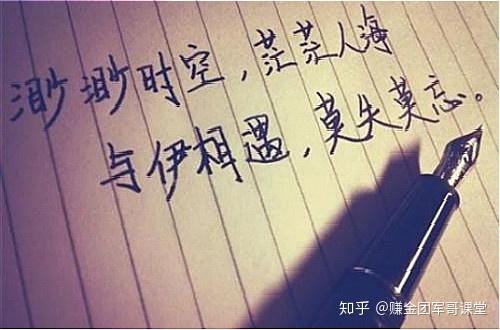 渺渺时空，茫茫人海
与伊相遇，莫失莫忘。
知乎 @赚金团军哥课堂